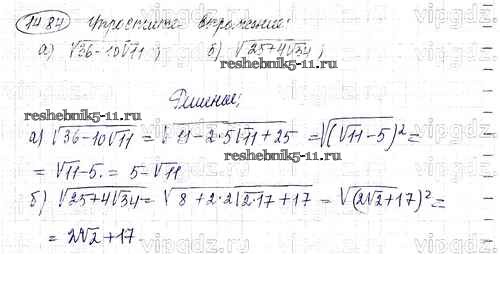 1484 Упростите выражение:
а) √36-10√11; б) √25+4√34;
reshebnik5-11.ru
Решение:
reshebnik5-11.ru
а) √36-10√11 = √11-2·5√11+25 = √(√11-5)² =
= √11-5. = 5-√11
reshebnik5-11.ru
б) √25+4√34 = √8+2·2√2·17+17 = √(2√2+17)² =
= 2√2+17